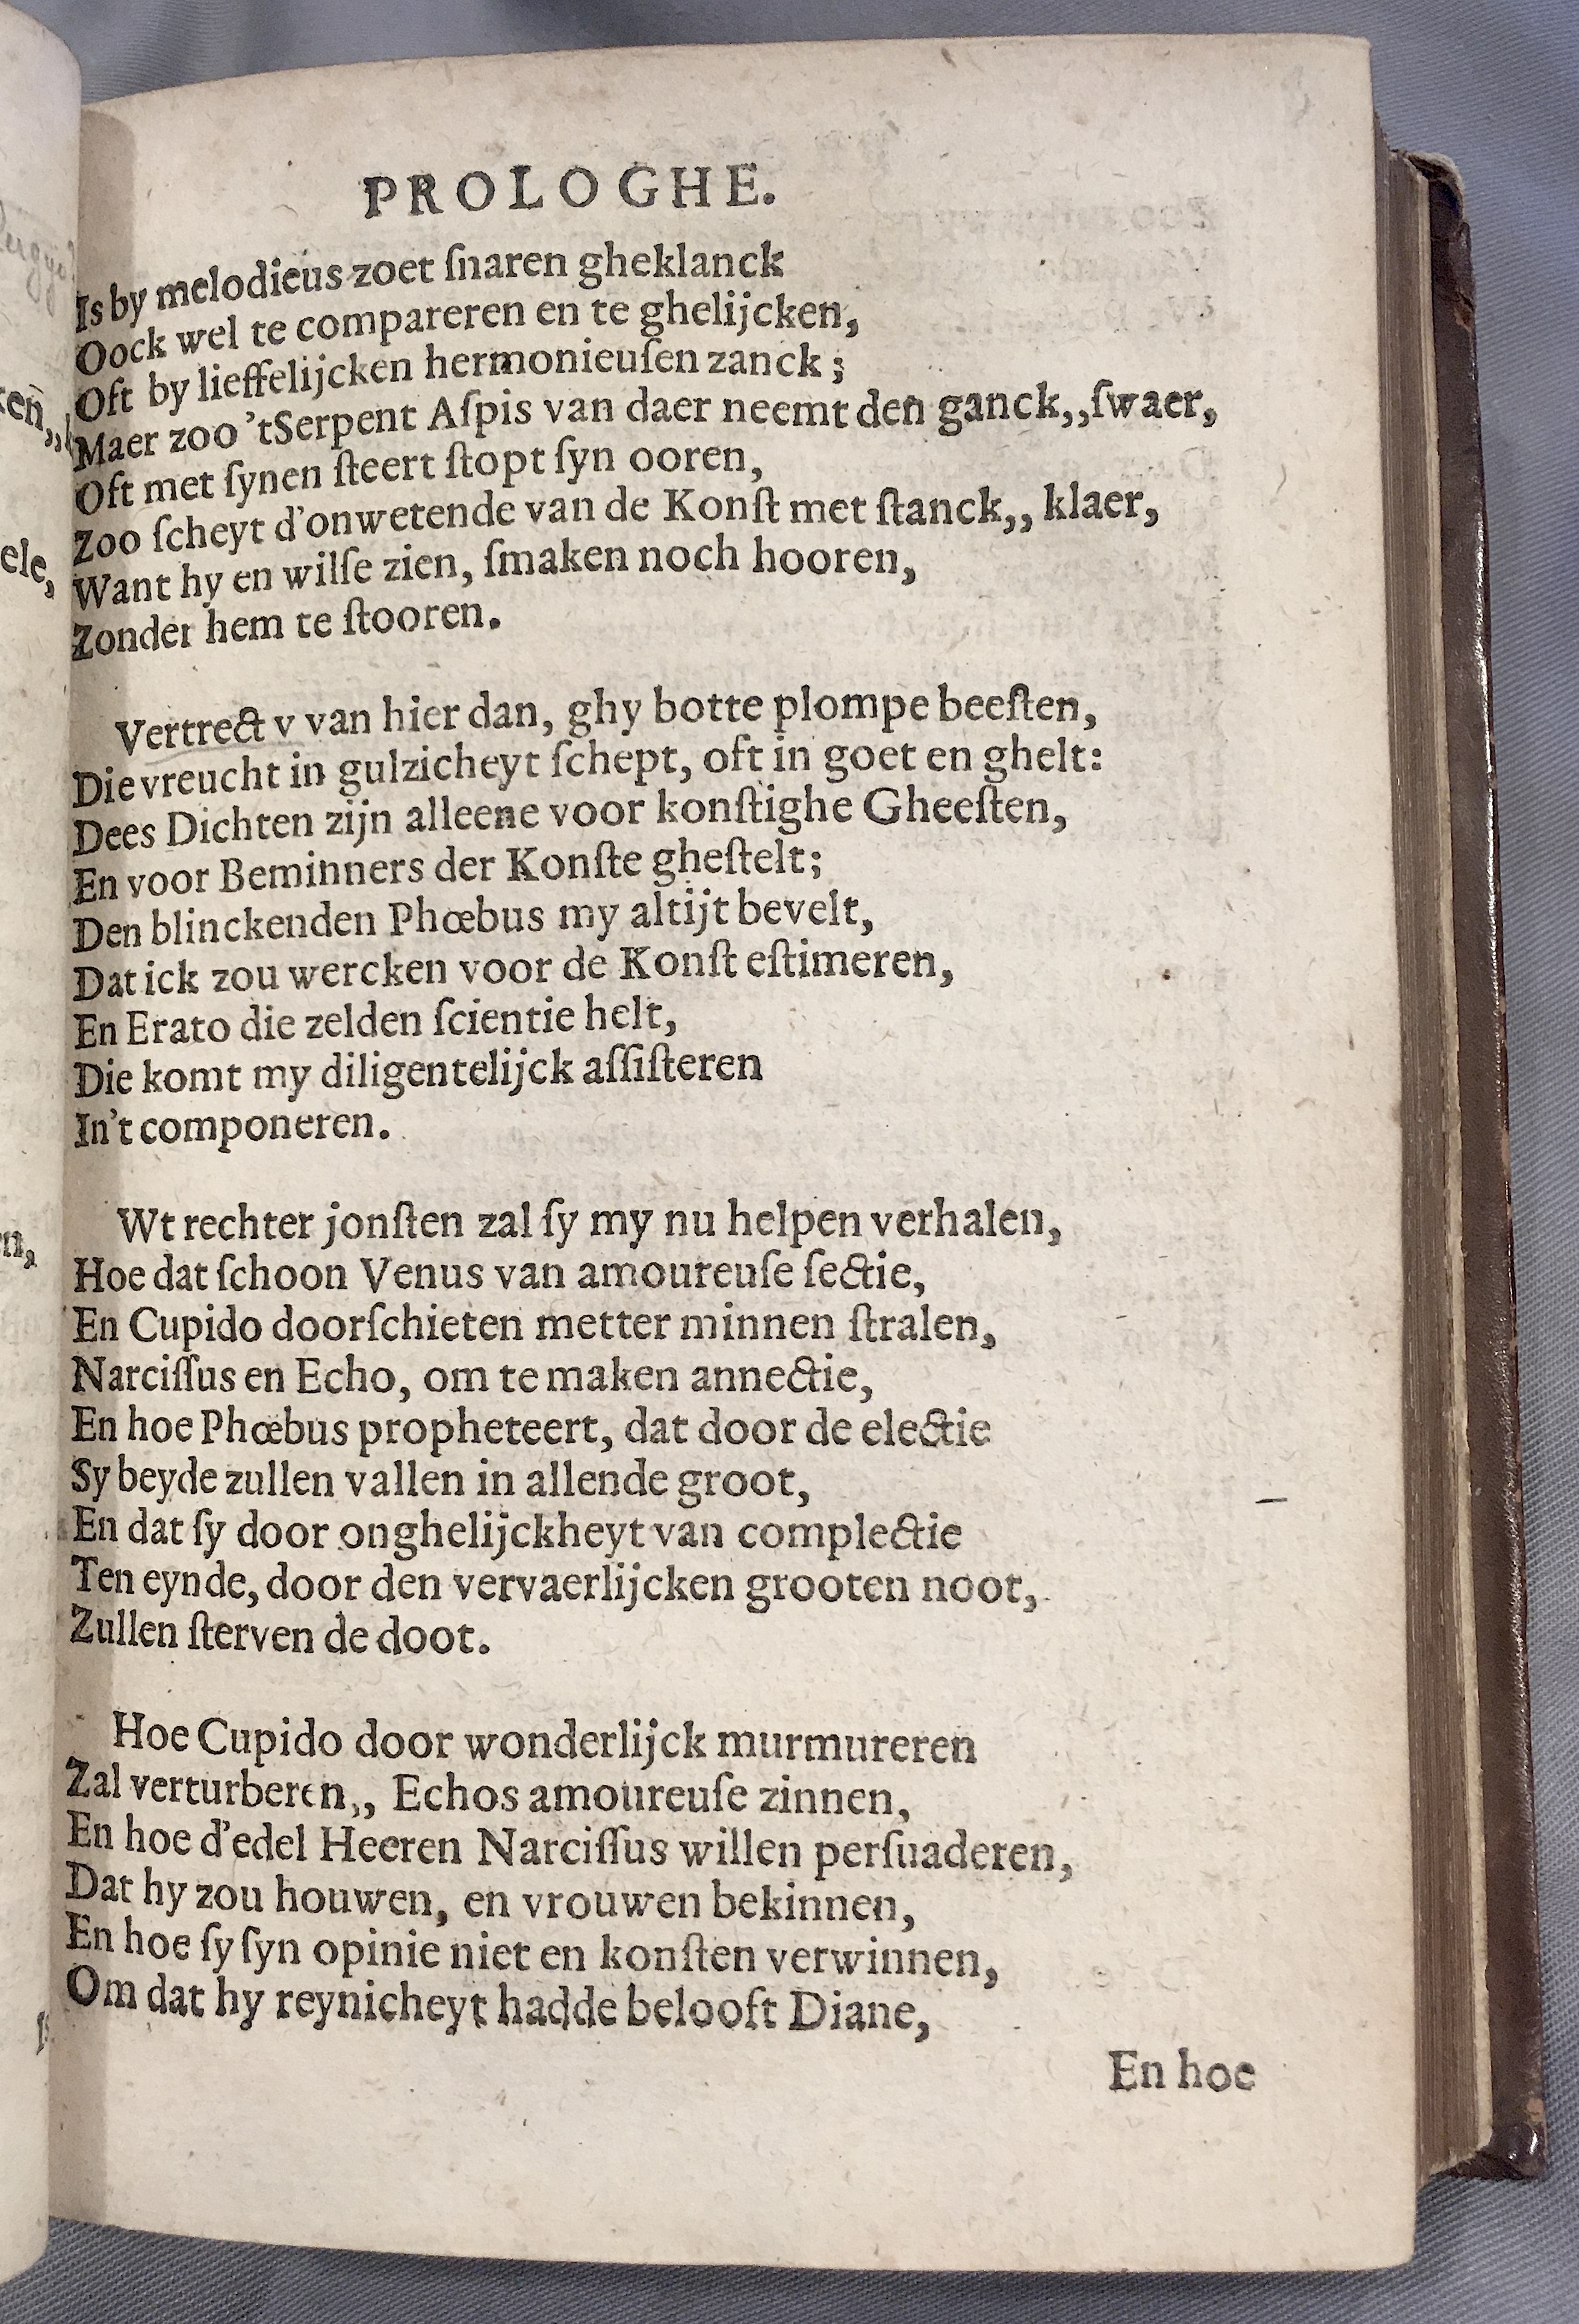 PROLOGHE.
Is by melodieus zoet ſnaren gheklanck
Oock wel te compareren en te ghelijcken,
Oft by lieffelijcken hermonieuſen zanck;
Maer zoo 'tSerpent Aſpis van daer neemt den ganck,,ſwaer,
Oft met ſynen ſteert ſtopt ſyn ooren,
Zoo ſcheyt d'onwetende van de Konſt met ſtanck,, klaer,
Want hy en wilſe zien, ſmaken noch hooren,
Zonder hem te ſtooren.
Vertrect v van hier dan, ghy botte plompe beeſten,
Die vreucht in gulzicheyt ſchept, oft in goet en ghelt:
Dees Dichten zijn alleene voor konſtighe Gheeſten,
En voor Beminners der Konſte gheſtelt;
Den blinckenden Phœbus my altijt bevelt,
Dat ick zou wercken voor de Konſt eſtimeren,
En Erato die zelden ſcientie helt,
Die komt my diligentelijck aſſiſteren
In't componeren.
Wt rechter jonſten zal ſy my nu helpen verhalen,
Hoe dat ſchoon Venus van amoureuſe ſectie,
En Cupido doorſchieten metter minnen ſtralen,
Narciſſus en Echo, om te maken annectie,
En hoe Phœbus propheteert, dat door de electie
Sy beyde zullen vallen in allende groot,
En dat ſy door onghelijckheyt van complectie
Ten eynde, door den vervaerlijcken grooten noot,
Zullen ſterven de doot.
Hoe Cupido door wonderlijck murmureren
Zal verturberen,, Echos amoureuſe zinnen,
En hoe d'edel Heeren Narciſſus willen perſuaderen,
Dat hy zou houwen, en vrouwen bekinnen,
En hoe ſy ſyn opinie niet en konſten verwinnen,
Om dat hy reynicheyt hadde belooft Diane,
En hoe